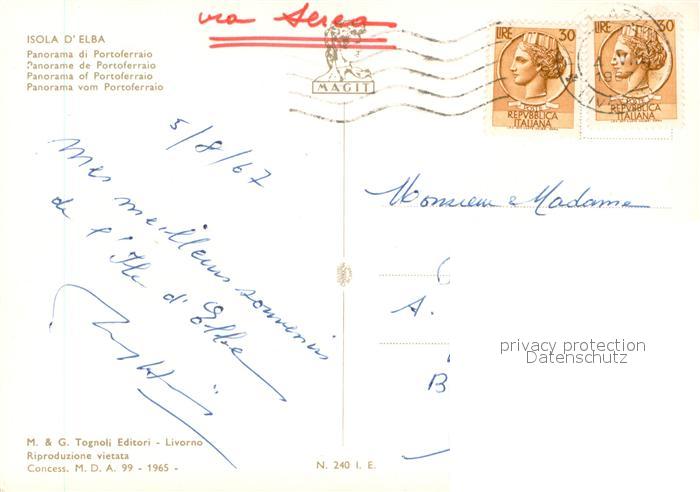 via aerea
ISOLA D'ELBA
Panorama di Portoferraio
Panorame de Portoferraio
Panorama of Portoferraio
Panorama vom Portoferraio
MAGIT
LIRE 30
POSTE
REPVBBLICA
ITALIANA
LIRE 30
POSTE
REPVBBLICA
ITALIANA
5/8/67
Mes meilleurs souvenirs
de l'Ile d'Elbe
Monsieur & Madame
A.
B
privacy protection
Datenschutz
M. & G. Tognoli Editori - Livorno
Riproduzione vietata
Concess. M. D. A. 99 - 1965 -
N. 240 I. E.